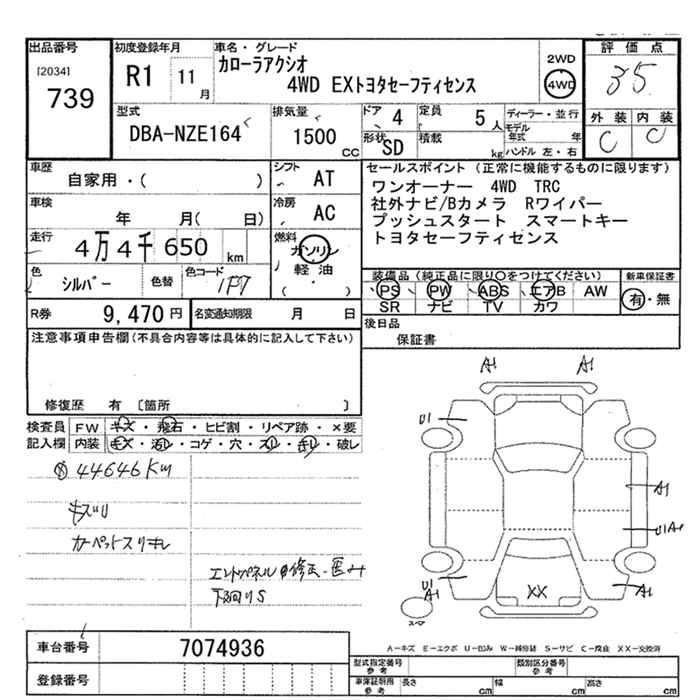 出品番号 初度登録年月 車名・グレード 評価点
[2034] R1 11月 カローラアクシオ 2WD 35
739 4WD EXトヨタセーフティセンス 4WD
型式 排気量 ドア 4 定員 5人 ディーラー・並行 外装 内装
DBA-NZE164 1500CC 形状 SD 積載 kg モデル年式 年 C C
ハンドル 左・右
車歴 シフト セールスポイント (正常に機能するものに限ります)
自家用・( ) AT ワンオーナー 4WD TRC
車検 冷房 社外ナビ/Bカメラ Rワイパー
年 月( 日) AC プッシュスタート スマートキー
走行 4万4千650km 燃料 ガソリン トヨタセーフティセンス
軽油
(・)
色 シルバー 色替 色コード 1F7 装備品(純正品に限り○をつけてください) 新車保証書
PS PW ABS エアB AW 有・無
SR ナビ TV カワ
R券 9,470円 名変通知期限 月 日 後日品
保証書
注意事項申告欄(不具合内容等は具体的に記入して下さい)
修復歴 有 〔箇所 〕
A1 A1
検査員記入欄 FW キズ・飛石・ヒビ割・リペア跡・×要
内装 キズ・汚レ・コゲ・穴・スリ・キレ・破レ
U1
⊗ 44646Km
A1
キズU
カーペットスリキレ
U1A1
エンドパネル修正・歪み
下廻りS
U1
A1 XX A1
スペア
A-キズ E-エクボ U-凹み W-補修跡 S-サビ C-腐食 XX-交換済
車台番号 7074936
登録番号
型式指定番号 参考 類別区分番号 参考
車庫証明用 参考 長さ cm 幅 cm 高さ cm